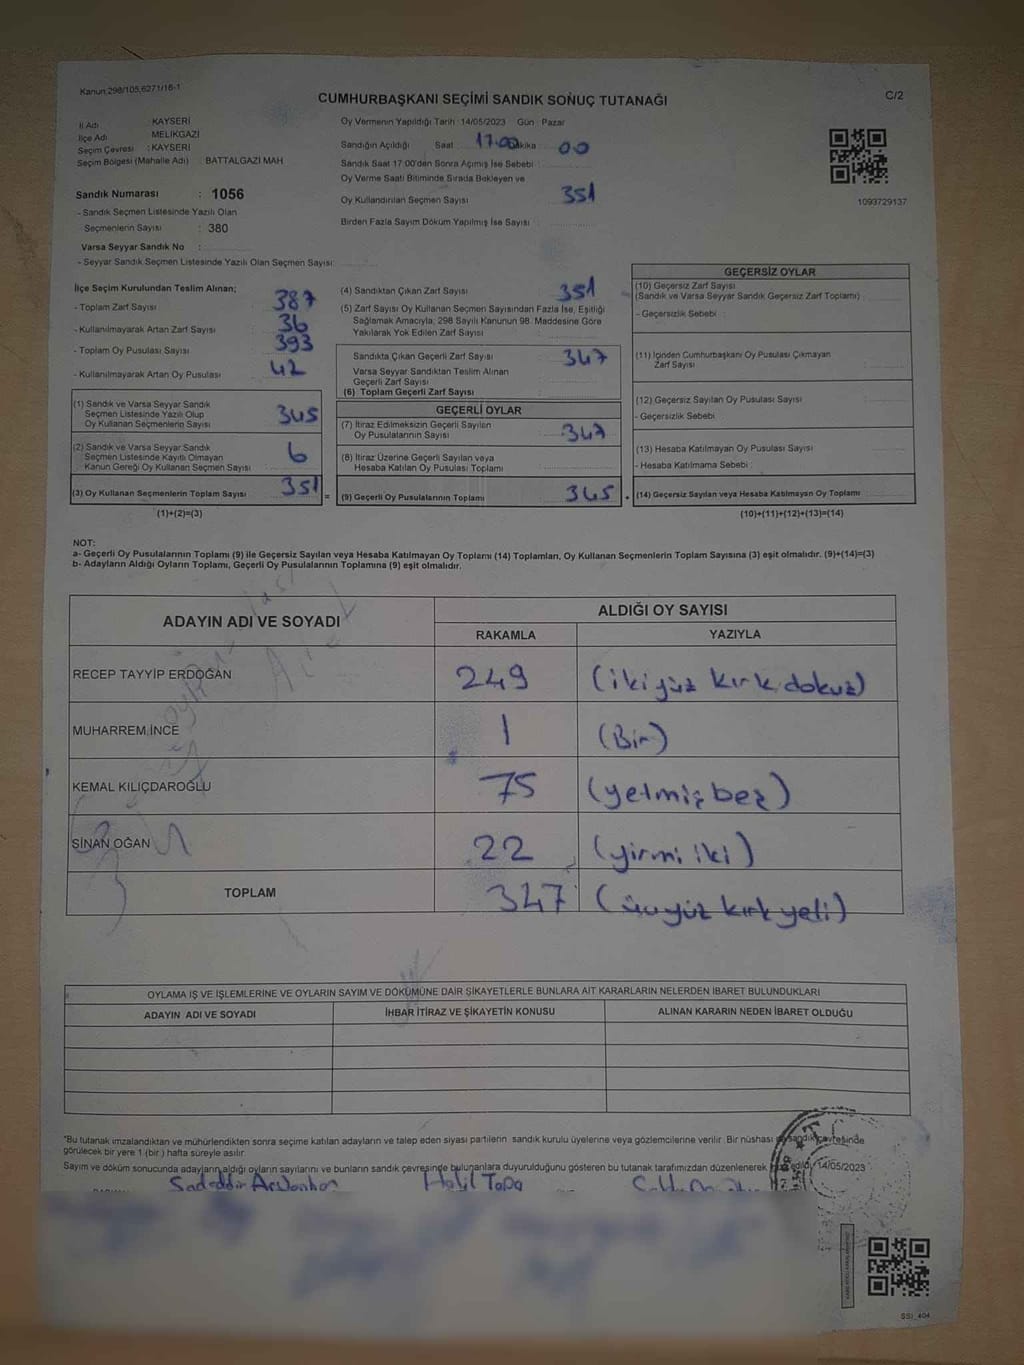 Kanun,298/105,6271/16-1
CUMHURBAŞKANI SEÇİMİ SANDIK SONUÇ TUTANAĞI
C/2
İl Adı KAYSERİ
İlçe Adı MELİKGAZİ
Seçim Çevresi : KAYSERİ
Seçim Bölgesi (Mahalle Adı) : BATTALGAZİ MAH
Sandık Numarası : 1056
- Sandık Seçmen Listesinde Yazılı Olan
Seçmenlerin Sayısı : 380
Varsa Seyyar Sandık No :
- Seyyar Sandık Seçmen Listesinde Yazılı Olan Seçmen Sayısı:
Oy Vermenin Yapıldığı Tarih : 14/05/2023 Gün : Pazar
Sandığın Açıldığı Saat 17.00 kika : 00
Sandık Saat 17:00'den Sonra Açımış İse Sebebi :
Oy Verme Saati Bitiminde Sırada Bekleyen ve
Oy Kullandırılan Seçmen Sayısı 351
Birden Fazla Sayım Döküm Yapılmış İse Sayısı :
1093729137
İlçe Seçim Kurulundan Teslim Alınan;
- Toplam Zarf Sayısı : 387
- Kullanılmayarak Artan Zarf Sayısı : 36
- Toplam Oy Pusulası Sayısı : 393
- Kullanılmayarak Artan Oy Pusulası : 42
(1) Sandık ve Varsa Seyyar Sandık
Seçmen Listesinde Yazılı Olup
Oy Kullanan Seçmenlerin Sayısı : 345
(2) Sandık ve Varsa Seyyar Sandık
Seçmen Listesinde Kayıtlı Olmayan
Kanun Gereği Oy Kullanan Seçmen Sayısı : 6
(3) Oy Kullanan Seçmenlerin Toplam Sayısı : 351
(1)+(2)=(3)
(4) Sandıktan Çıkan Zarf Sayısı : 351
(5) Zarf Sayısı Oy Kullanan Seçmen Sayısından Fazla İse, Eşitliği
Sağlamak Amacıyla, 298 Sayılı Kanunun 98. Maddesine Göre
Yakılarak Yok Edilen Zarf Sayısı :
Sandıkta Çıkan Geçerli Zarf Sayısı : 347
Varsa Seyyar Sandıktan Teslim Alınan
Geçerli Zarf Sayısı :
(6) Toplam Geçerli Zarf Sayısı :
GEÇERLİ OYLAR
(7) İtiraz Edilmeksizin Geçerli Sayılan
Oy Pusulalarının Sayısı : 347
(8) İtiraz Üzerine Geçerli Sayılan veya
Hesaba Katılan Oy Pusulası Toplamı :
= (9) Geçerli Oy Pusulalarının Toplamı : 345
GEÇERSİZ OYLAR
(10) Geçersiz Zarf Sayısı
(Sandık ve Varsa Seyyar Sandık Geçersiz Zarf Toplamı) :
- Geçersizlik Sebebi :
(11) İçinden Cumhurbaşkanı Oy Pusulası Çıkmayan
Zarf Sayısı :
(12) Geçersiz Sayılan Oy Pusulası Sayısı :
- Geçersizlik Sebebi :
(13) Hesaba Katılmayan Oy Pusulası Sayısı :
- Hesaba Katılmama Sebebi :
(14) Geçersiz Sayılan veya Hesaba Katılmayan Oy Toplamı :
(10)+(11)+(12)+(13)=(14)
NOT:
a- Geçerli Oy Pusulalarının Toplamı (9) ile Geçersiz Sayılan veya Hesaba Katılmayan Oy Toplamı (14) Toplamları, Oy Kullanan Seçmenlerin Toplam Sayısına (3) eşit olmalıdır. (9)+(14)=(3)
b- Adayların Aldığı Oyların Toplamı, Geçerli Oy Pusulalarının Toplamına (9) eşit olmalıdır.
ADAYIN ADI VE SOYADI ALDIĞI OY SAYISI
RAKAMLA YAZIYLA
RECEP TAYYİP ERDOĞAN 249 (ikiyüz kırk dokuz)
MUHARREM İNCE 1 (Bir)
KEMAL KILIÇDAROĞLU 75 (yetmiş beş)
SİNAN OĞAN 22 (yirmi iki)
TOPLAM 347 (üçyüz kırk yeli)
OYLAMA İŞ VE İŞLEMLERİNE VE OYLARIN SAYIM VE DÖKÜMÜNE DAİR ŞİKAYETLERLE BUNLARA AİT KARARLARIN NELERDEN İBARET BULUNDUKLARI
ADAYIN ADI VE SOYADI İHBAR İTİRAZ VE ŞİKAYETİN KONUSU ALINAN KARARIN NEDEN İBARET OLDUĞU
*Bu tutanak imzalandıktan ve mühürlendikten sonra seçime katılan adayların ve talep eden siyasi partilerin sandık kurulu üyelerine veya gözlemcilerine verilir. Bir nüshası sandık çevresinde
görülecek bir yere 1 (bir) hafta süreyle asılır.
Sayım ve döküm sonucunda adayların aldığı oyların sayılarını ve bunların sandık çevresinde bulunanlara duyurulduğunu gösteren bu tutanak tarafımızdan düzenlenerek 14/05/2023
Halil Topa
SSİ_404